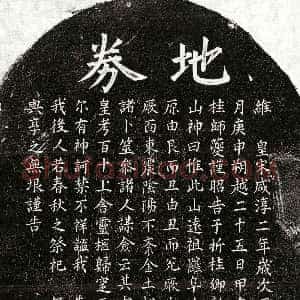 地劵
維皇宋咸淳二年歲次
月庚申朔越二十五日甲
桂師夔謹昭告于折桂鄉
山神曰惟此山遠祖
原由艮而丑由丑而兊
厥西東環陰陽不紊金土
諸卜筮參諸人謀僉云其
皇考百十上舍靈柩歸窆
尔有神訶禁不祥蘊我
我後人若春秋之祭祀
與享之無垠謹告